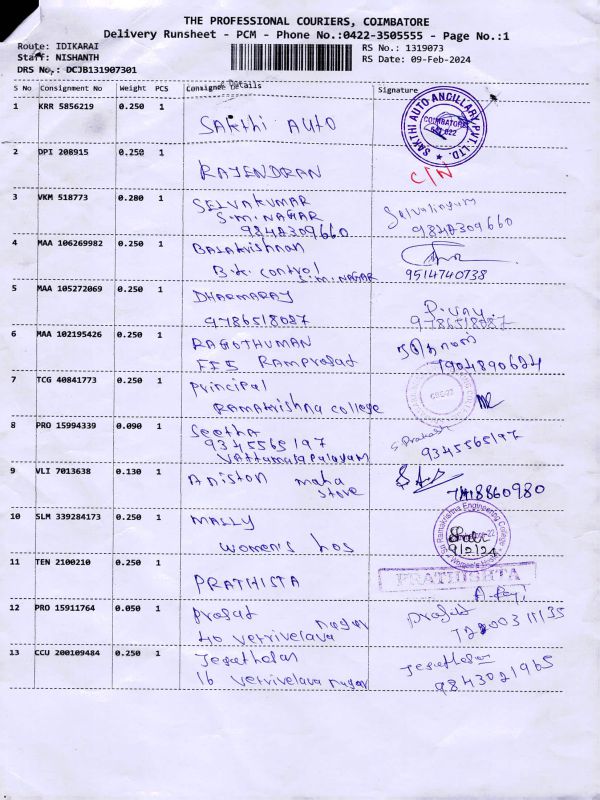 THE PROFESSIONAL COURIERS, COIMBATORE
Delivery Runsheet - PCM - Phone No.:0422-3505555 - Page No.:1
Route: IDIKARAI RS No.: 1319073
Staff: NISHANTH RS Date: 09-Feb-2024
DRS No.: DCJB131907301
S No Consignment No Weight PCS Consignee Details Signature
1 KRR 5856219 0.250 1 SAKthi AUTO SAKTHI AUTO ANCILLARY PVT. LTD. COIMBATORE
2 DPI 208915 0.250 1 RAJENDRAN C/N
3 VKM 518773 0.280 1 SELVAKUMAR
S.M.NAGAR
9842309660 9842309660
4 MAA 106269982 0.250 1 Balakrishnan
control S.M.NAGAR 9514740738
5 MAA 105272069 0.250 1 DHARMARAJ
9786518087 9786518087
6 MAA 102195426 0.250 1 RAGOTHUMAN
FF5 RamPrasat
7 TCG 40841773 0.250 1 principal
Ramakrishna college
8 PRO 15994339 0.090 1 Seetha S. Prakash
9345565197 9345565197
9 VLI 7013638 0.130 1 Aniston maha
store
10 SLM 339284173 0.250 1 MALLY Sri Ramakrishna Engineering College
women's hos 9/2/24
11 TEN 2100210 0.250 1 PRATHISTA PRATHISHTA
12 PRO 15911764 0.050 1 prasat nagar
40 vetrivelava
13 CCU 200109484 0.250 1 Jesuthasan Jesuthasan
16 vetrivelava nagar 9843021965